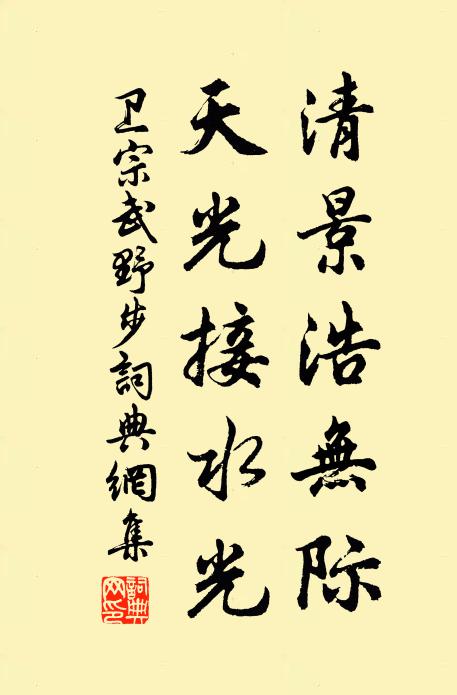 清景浩無际
天光接水光
卫宗武野步詞典網集
詞典网印